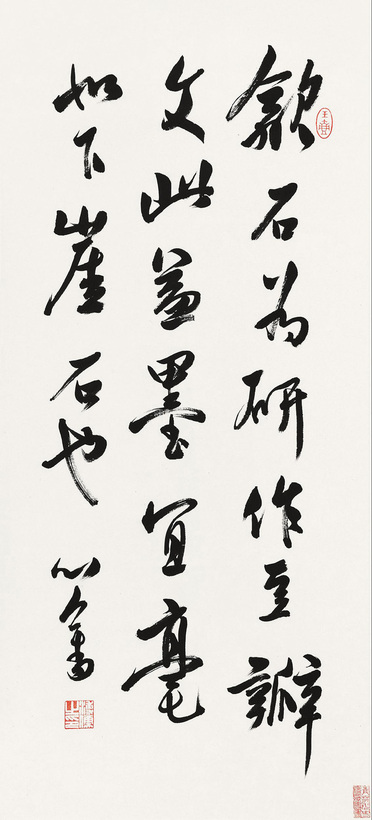 歙石為研作豆瓣
文此益墨宜毫
如下崖石也
心畬